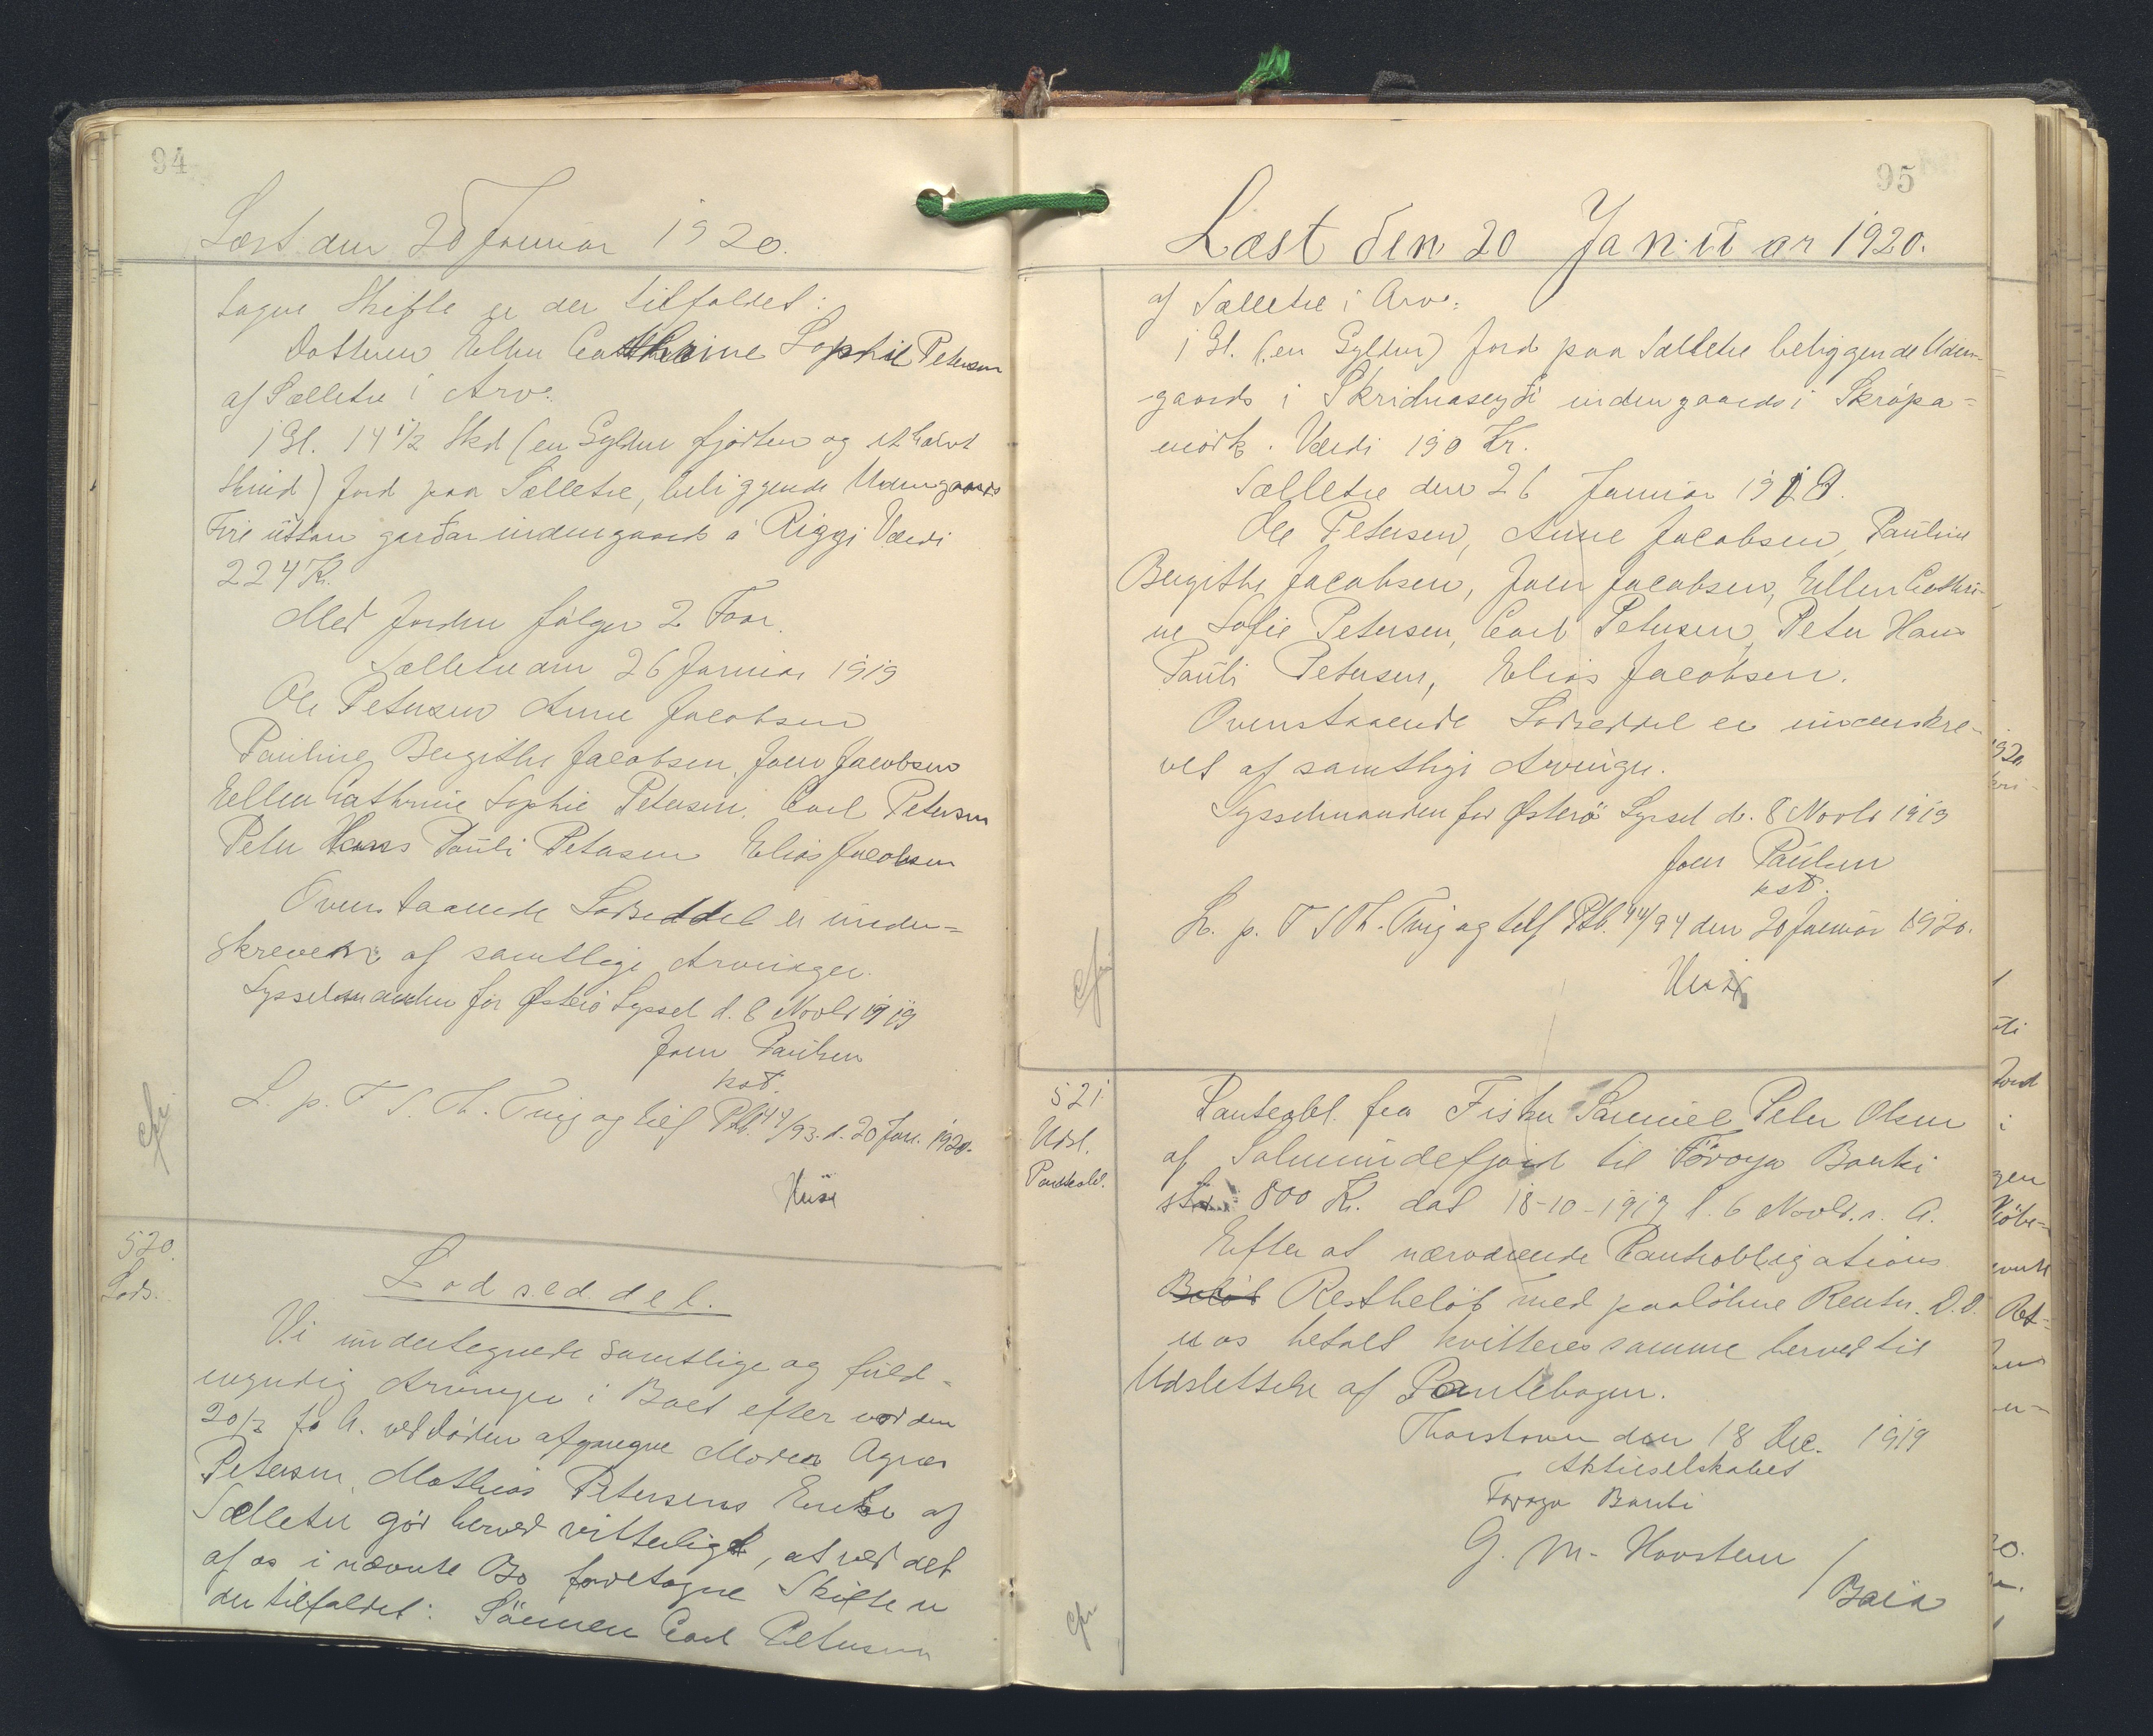 94
Læst den 20 Januar 1920.
tagne Skifte er der tilfaldet:
Datteren Ellen Cathrine Sophie Petersen
af Selletræ i Arv:
1 Gl. 14 1/2 Skd (en Gylden fjorten og et halvt
Skind) Jord paa Selletræ, beliggende Udengaards
uttan gardar indengaards a Riggi Værdi
224 Kr.
Med Jorden følger 2 Faar.
Selletræ den 26 Januar 1919
Ole Petersen Anne Jacobsen
Pauline Bergithe Jacobsen, Joen Jacobsen
Ellen Cathrine Sophie Petersen, Carl Petersen
Peter Hans Pauli Petersen Elias Jacobsen
Ovenstaaende Lodseddel er under=
skreven af samtlige Arvinger.
Sysselmanden for Østerø Syssel d. 8 Novbr 1919
Joen Paulsen
kst.
L. p. F. S. Th. Ting og tilf Ptb. 44/93. d. 20 Jan. 1920.
520.
Lods.
Lodseddel.
Vi undertegnede samtlige og fuld-
myndig Arvinger i Boet efter vor den
20/2 f. A. ved Døden afgangne Moder Agnes
Petersen, Mathias Petersens Enke af
Selletræ gør herved vitterligt, at ved det
af os i nævnte Bo foretagne Skifte er
der tilfaldet: Sønnen Carl Petersen
95
Læst den 20 Januar 1920.
af Selletræ i Arv:
1 Gl. (en Gylden) Jord paa Selletræ beliggende Uden-
gaards i Skridnaseyði indengaards i Skrópa=
mørk. Værdi 190 Kr.
Selletræ den 26 Januar 1919.
Ole Petersen, Anne Jacobsen, Pauline
Bergithe Jacobsen, Joen Jacobsen, Ellen Cathri-
ne Sofie Petersen, Carl Petersen, Peter Hans
Pauli Petersen, Elias Jacobsen.
Ovenstaaende Lodseddel er underskre-
vet af samtlige Arvinger.
Sysselmanden for Østerø Syssel d. 8 Novbr 1919
Joen Paulsen
kst.
L. p. F S Th. Ting og tilf Ptb. 44/94 den 20 Januar 1920.
521.
Udsl.
Panteobl.
Panteobl. fra Fisker Samuel Peter Olsen
af Solmundefjord til Föroya Banki
stor 800 Kr. dat 18-10-1919 l. 6 Novbr. s. A.
Efter at nærværende Panteobligations
Beløb Restbeløb med paaløbne Renter D. D.
er os betalt kvitteres samme herved til
Udslettelse af Pantebogen.
Thorshavn den 18 Dec. 1919
Aktieselskabet
Føroya Banki